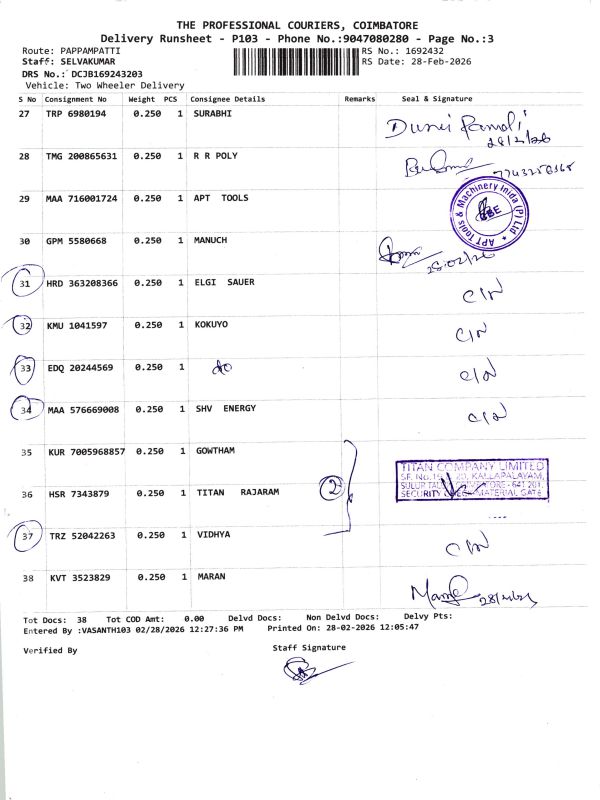 THE PROFESSIONAL COURIERS, COIMBATORE
Delivery Runsheet - P103 - Phone No.:9047080280 - Page No.:3
Route: PAPPAMPATTI RS No.: 1692432
Staff: SELVAKUMAR RS Date: 28-Feb-2026
DRS No.: DCJB169243203
Vehicle: Two Wheeler Delivery
S No Consignment No Weight PCS Consignee Details Remarks Seal & Signature
27 TRP 6980194 0.250 1 SURABHI
28/2/26
28 TMG 200865631 0.250 1 R R POLY
29 MAA 716001724 0.250 1 APT TOOLS
APT Tools & Machinery Inida (P) Ltd
30 GPM 5580668 0.250 1 MANUCH
28/02/26
31 HRD 363208366 0.250 1 ELGI SAUER C/N
32 KMU 1041597 0.250 1 KOKUYO C/N
33 EDQ 20244569 0.250 1 do C/N
34 MAA 576669008 0.250 1 SHV ENERGY C/N
35 KUR 7005968857 0.250 1 GOWTHAM
TITAN COMPANY LIMITED
KALLAPALAYAM,
SULUR 641 201.
36 HSR 7343879 0.250 1 TITAN RAJARAM 2
SECURITY MATERIAL GATE
37 TRZ 52042263 0.250 1 VIDHYA C/N
38 KVT 3523829 0.250 1 MARAN
Tot Docs: 38 Tot COD Amt: 0.00 Delvd Docs: Non Delvd Docs: Delvy Pts:
Entered By :VASANTH103 02/28/2026 12:27:36 PM Printed On: 28-02-2026 12:05:47
Verified By Staff Signature